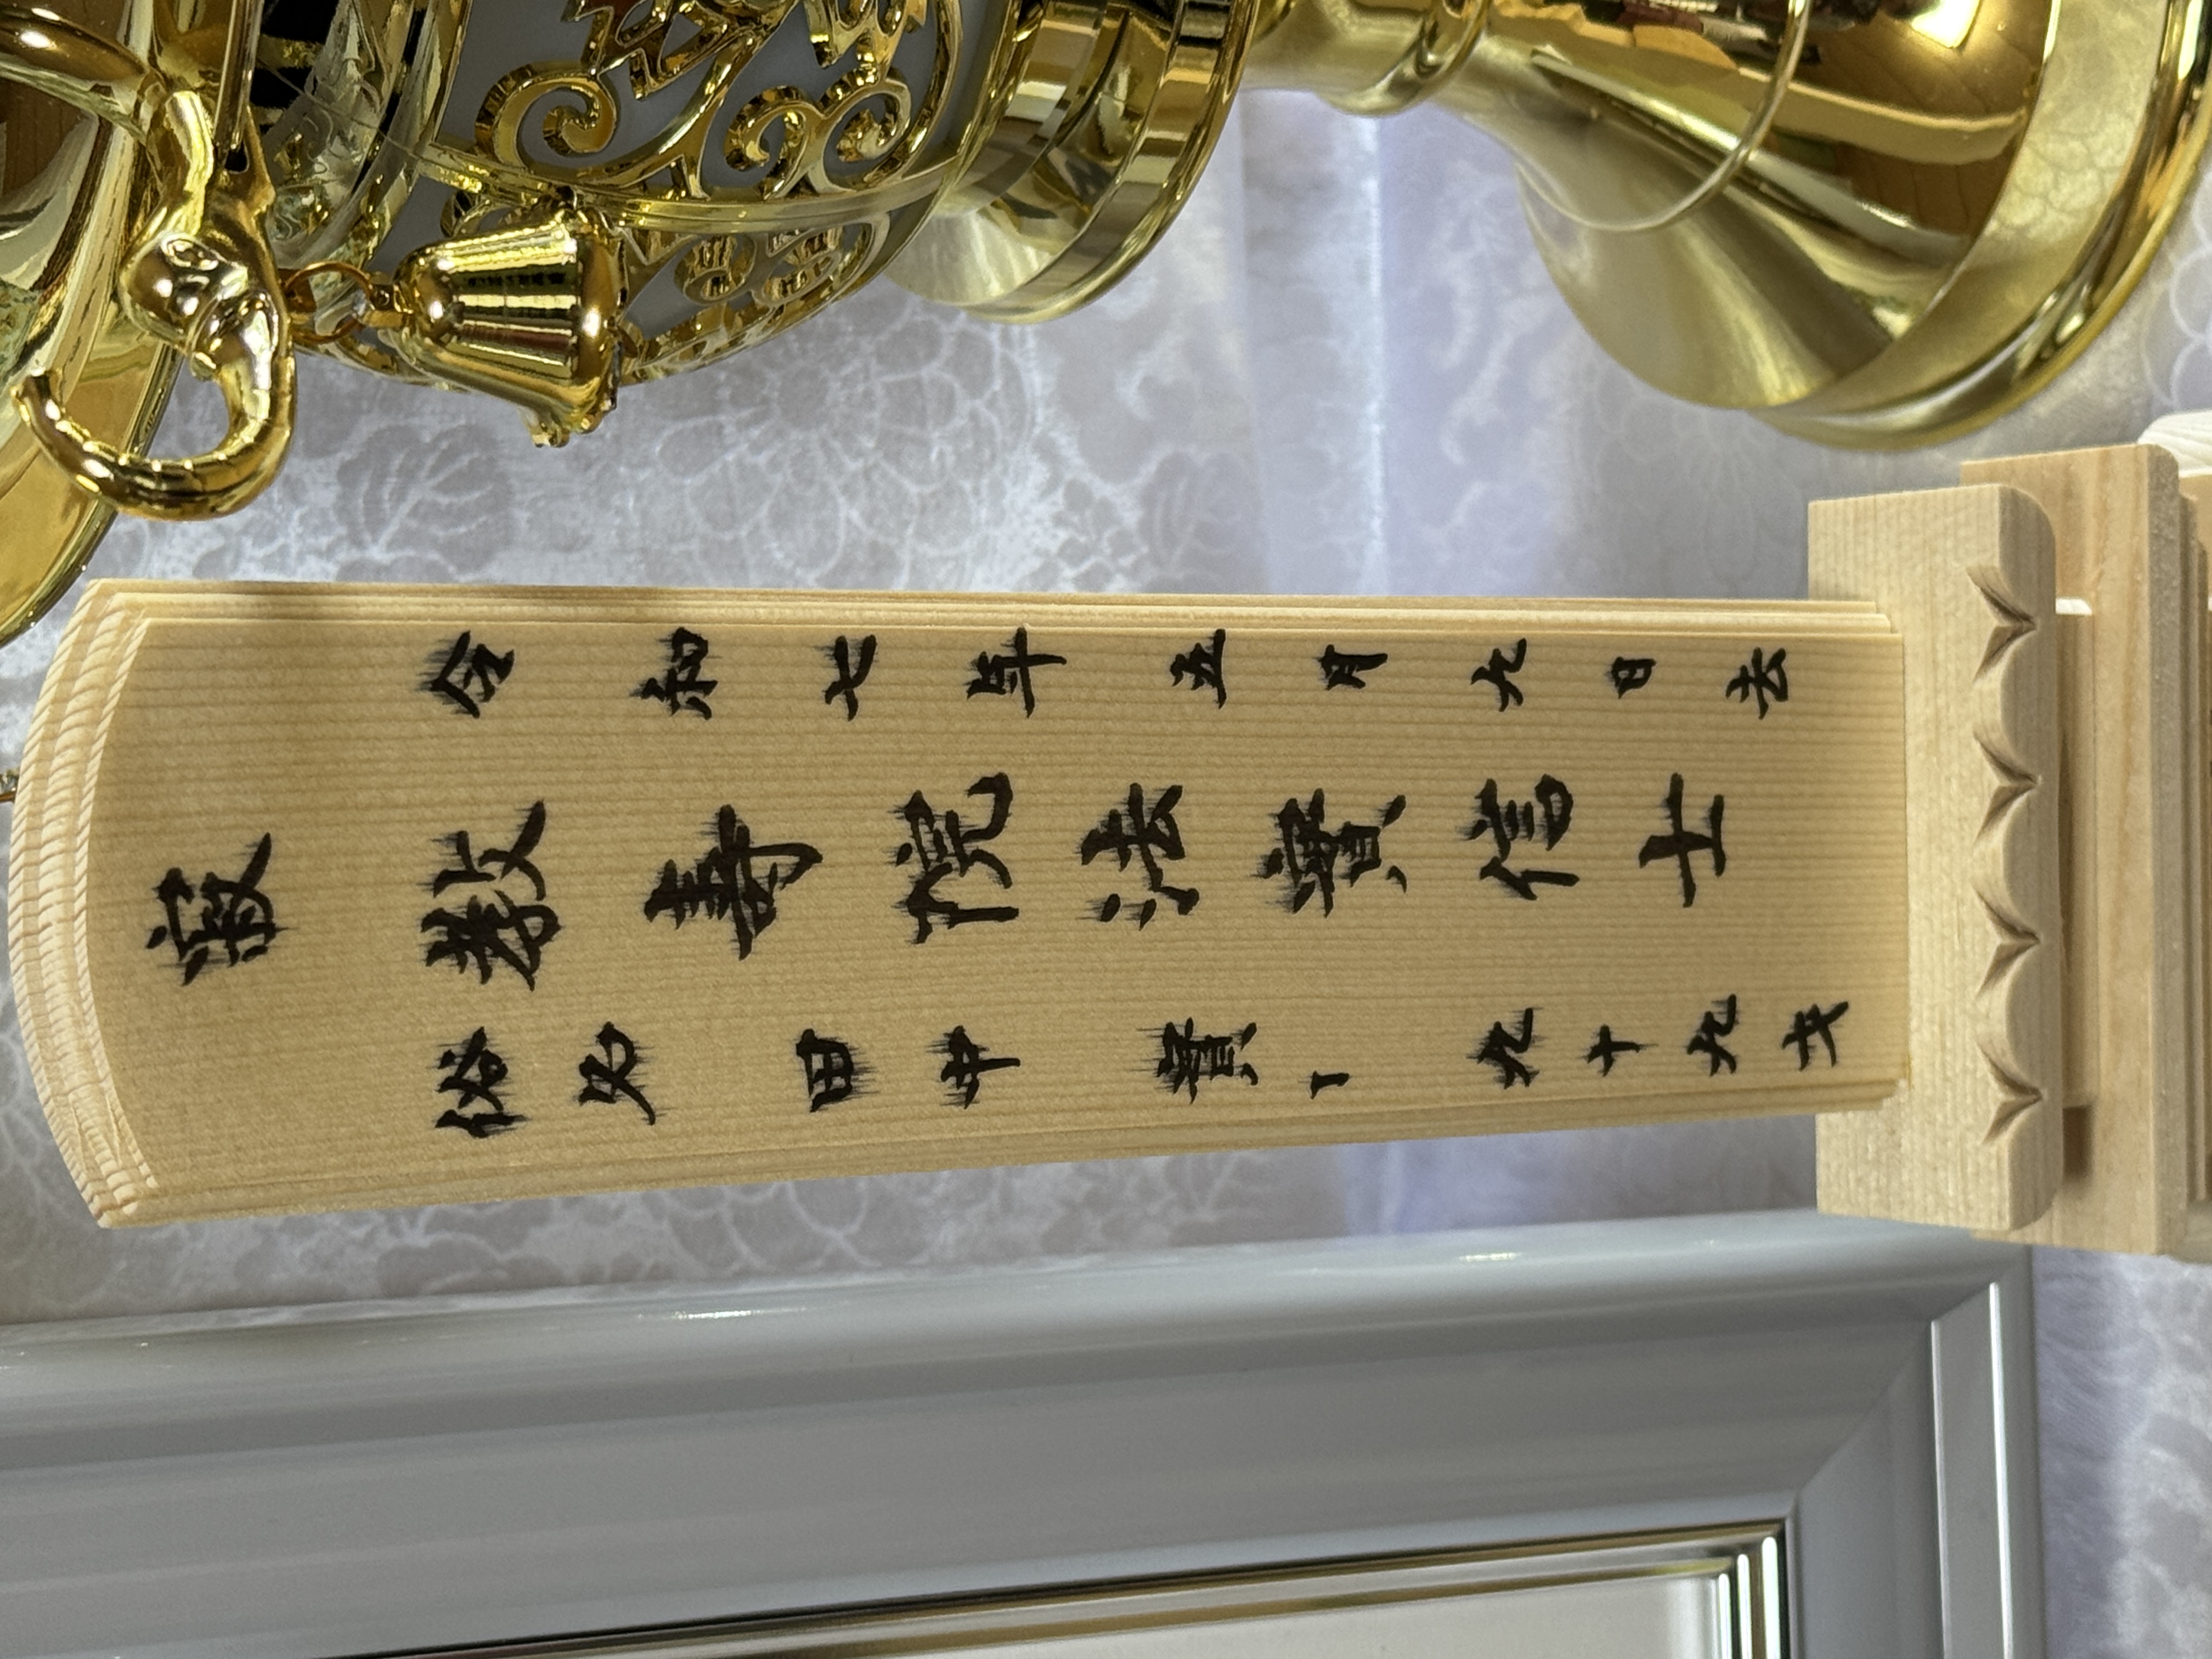 令和七年五月九日去
寂 教壽院法寳信士
俗名 田中 寳一 九十九才